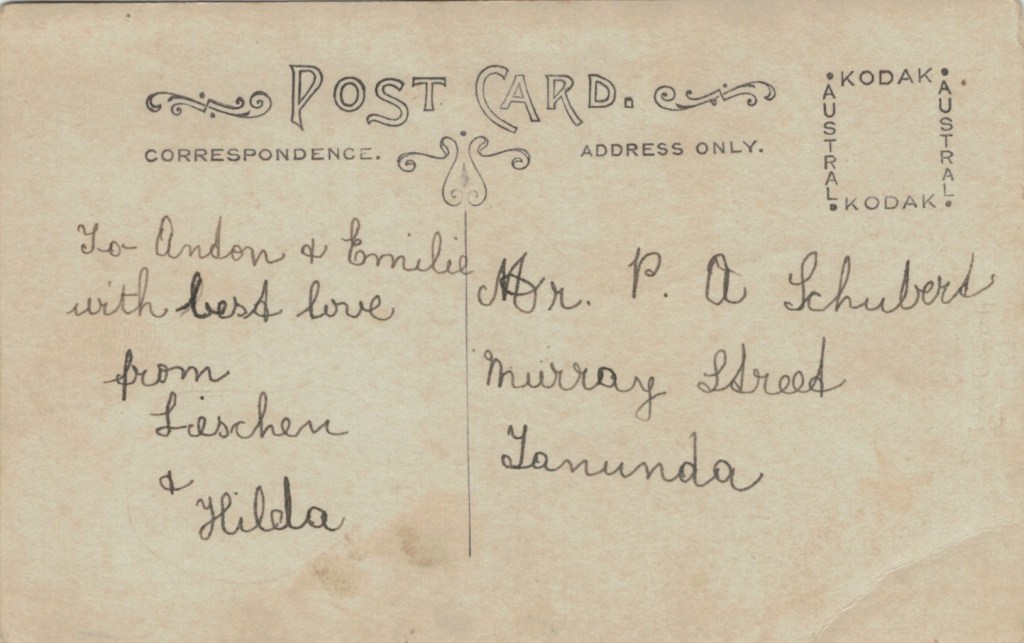 POST CARD.
CORRESPONDENCE.
ADDRESS ONLY.
KODAK
AUSTRAL
AUSTRAL
KODAK
To Anton & Emilie
with best love
from
Lieschen
& Hilda
Mr. P. A Schubert
Murray Street
Tanunda